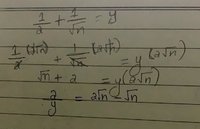 1/2 + 1/√n = y
1/2 (2√n) + 1/√n (2√n) = y (2√n)
√n + 2 = y(2√n)
2/y = 2√n - √n